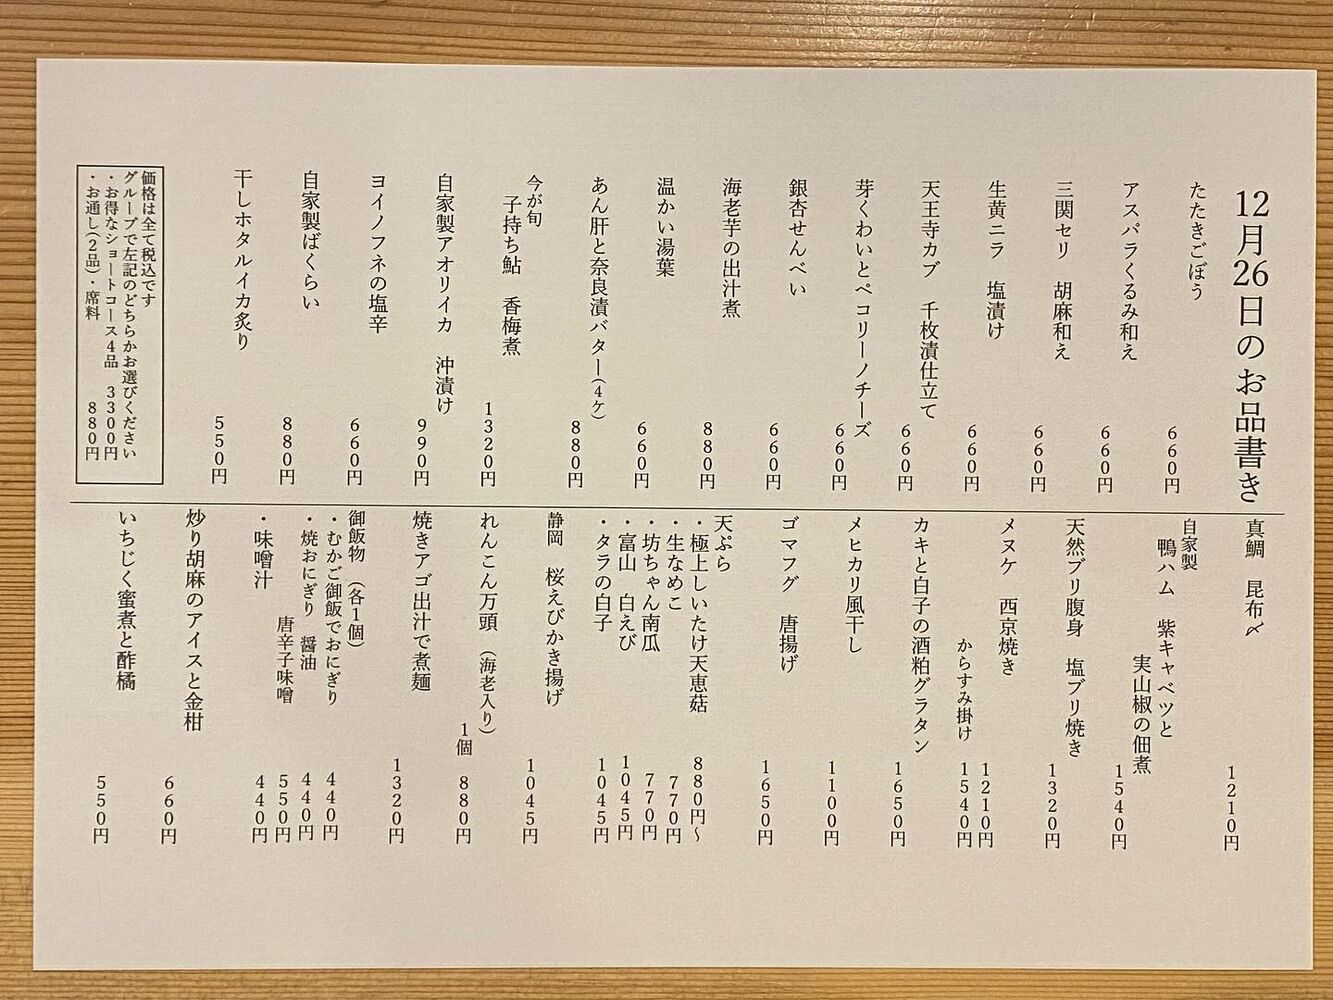 12月26日のお品書き
たたきごぼう 660円
アスパラくるみ和え 660円
三関セリ 胡麻和え 660円
生黄ニラ 塩漬け 660円
天王寺カブ 千枚漬仕立て 660円
芽くわいとペコリーノチーズ 660円
銀杏せんべい 660円
海老芋の出汁煮 880円
温かい湯葉 660円
あん肝と奈良漬バター(4ケ) 880円
今が旬
子持ち鮎 香梅煮 1320円
自家製アオリイカ 沖漬け 990円
ヨイノフネの塩辛 660円
自家製ばくらい 880円
干しホタルイカ炙り 550円
価格は全て税込です
グループで左記のどちらかお選びください
・お得なショートコース4品 3300円
・お通し(2品)・席料 880円
真鯛 昆布〆 1210円
自家製
鴨ハム 紫キャベツと
実山椒の佃煮 1540円
天然ブリ腹身 塩ブリ焼き 1320円
メヌケ 西京焼き 1210円
からすみ掛け 1540円
カキと白子の酒粕グラタン 1650円
メヒカリ風干し 1100円
ゴマフグ 唐揚げ 1650円
天ぷら
・極上しいたけ天恵菇 880円~
・生なめこ 770円
・坊ちゃん南瓜 770円
・富山 白えび 1045円
・タラの白子 1045円
静岡 桜えびかき揚げ 1045円
れんこん万頭 (海老入り)
1個 880円
焼きアゴ出汁で煮麺 1320円
御飯物 (各1個)
・むかご御飯でおにぎり 440円
・焼おにぎり 醤油 440円
唐辛子味噌 550円
・味噌汁 440円
炒り胡麻のアイスと金柑 660円
いちじく蜜煮と酢橘 550円